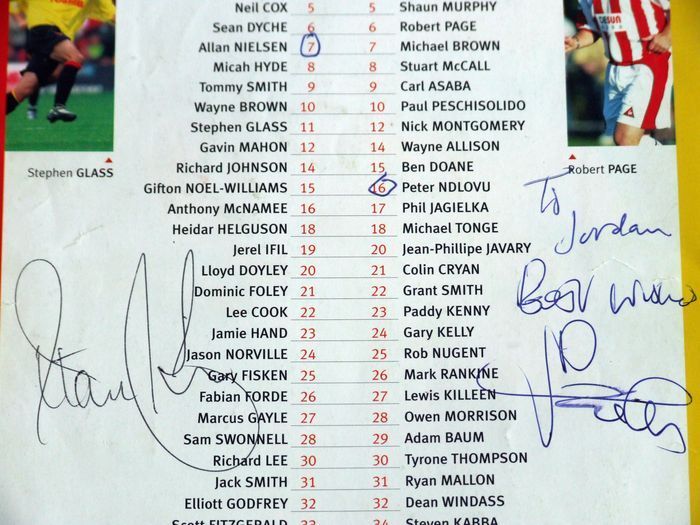 Neil COX 5 5 Shaun MURPHY
Sean DYCHE 6 6 Robert PAGE
Allan NIELSEN 7 7 Michael BROWN
Micah HYDE 8 8 Stuart McCALL
Tommy SMITH 9 9 Carl ASABA
Wayne BROWN 10 10 Paul PESCHISOLIDO
Stephen GLASS 11 12 Nick MONTGOMERY
Gavin MAHON 12 14 Wayne ALLISON
Richard JOHNSON 14 15 Ben DOANE
Gifton NOEL-WILLIAMS 15 16 Peter NDLOVU
Anthony McNAMEE 16 17 Phil JAGIELKA
Heidar HELGUSON 18 18 Michael TONGE
Jerel IFIL 19 20 Jean-Phillipe JAVARY
Lloyd DOYLEY 20 21 Colin CRYAN
Dominic FOLEY 21 22 Grant SMITH
Lee COOK 22 23 Paddy KENNY
Jamie HAND 23 24 Gary KELLY
Jason NORVILLE 24 25 Rob NUGENT
Gary FISKEN 25 26 Mark RANKINE
Fabian FORDE 26 27 Lewis KILLEEN
Marcus GAYLE 27 28 Owen MORRISON
Sam SWONNELL 28 29 Adam BAUM
Richard LEE 30 30 Tyrone THOMPSON
Jack SMITH 31 31 Ryan MALLON
Elliott GODFREY 32 32 Dean WINDASS
Scott FITZGERALD 33 34 Steven KABBA
Stephen GLASS
Robert PAGE
To
Jordan
Best wishes